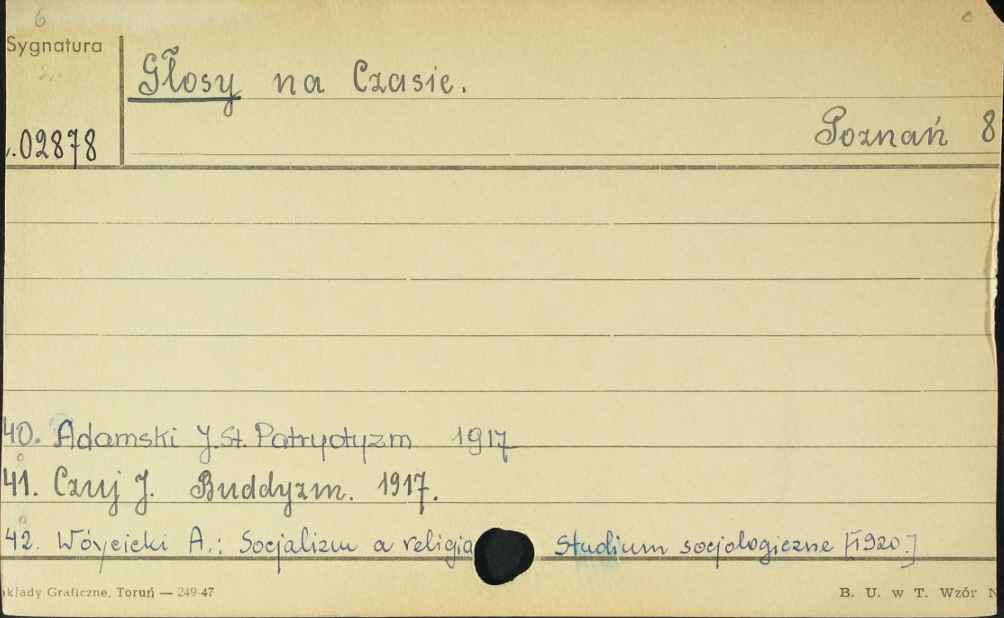 6
Sygnatura
Głosy na Czasie.
.02878
Poznań 8
40. Adamski J.St. Patryotyzm 1917
41. Czuj J. Buddyzm. 1917.
42. Wóycicki A.: Socjalizm a religia Studium socjologiczne [1920.]
kłady Graficzne, Toruń — 249-47
B. U. w T. Wzór N